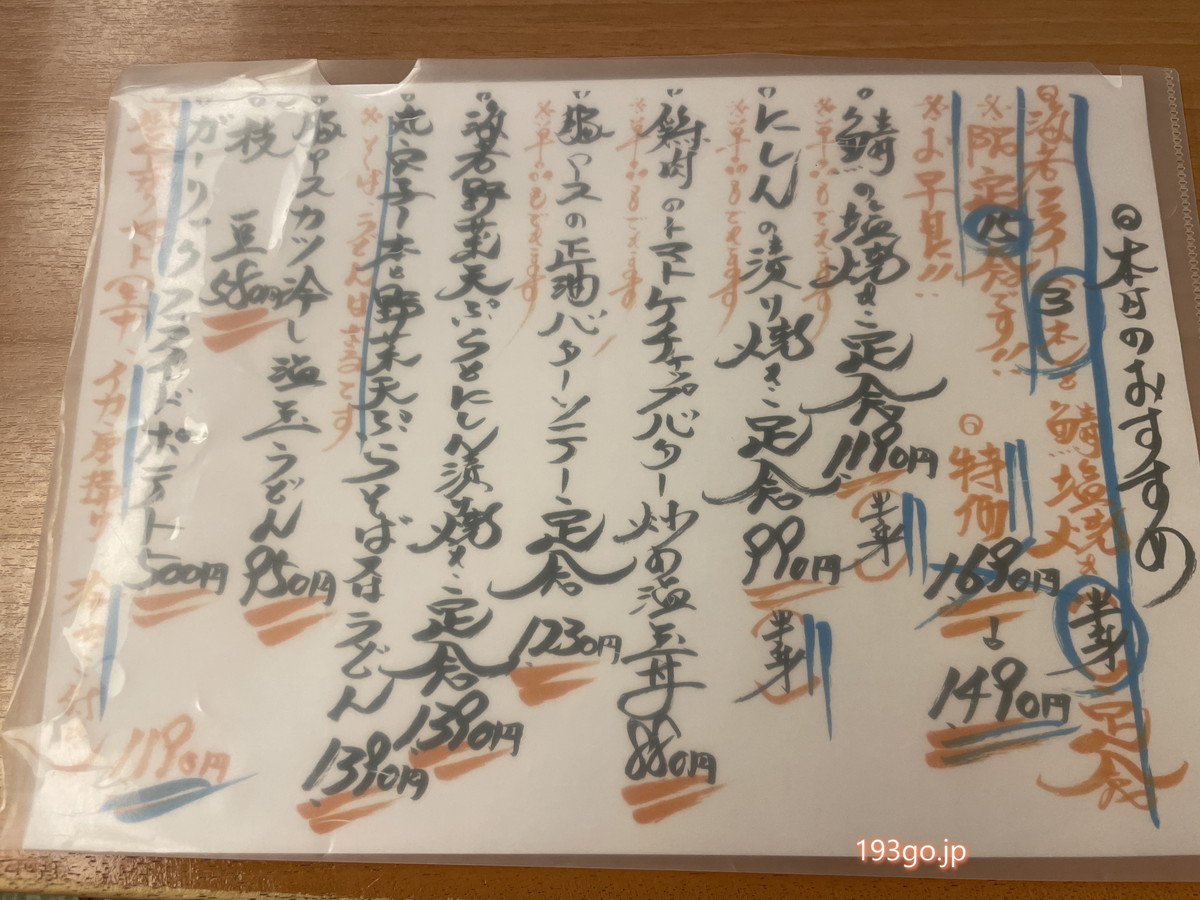 本日のおすすめ
海老フライ(3本)と鯖塩焼き半身定食
※限定15食です!!
※お早目に!!
特価 1690円→1490円
鯖の塩焼き定食 1190円 半身
※単品もできます
にしんの漬り焼き定食 990円 半身
※単品もできます
鶏肉のトマトケチャップバター炒め温玉丼 880円
※単品もできます
豚ロースの正油バターソテー定食 1230円
※単品もできます
海老野菜天ぷらとにしん漬焼き定食 1390円
穴子一本と野菜天ぷらそば又はうどん 1390円
※そば、うどんは
豚ロースカツ冷し温玉うどん 950円
枝豆 580円
ガーリックフライドポテト 500円
イカ 1190円
193go.jp